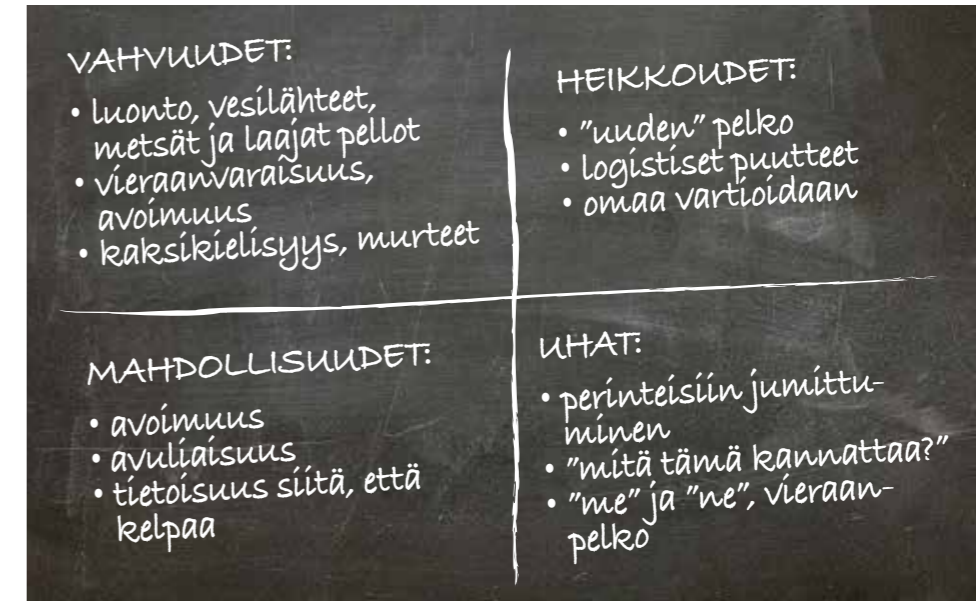 VAHVUUDET:
• luonto, vesilähteet,
metsät ja laajat pellot
• vieraanvaraisuus,
avoimuus
• kaksikielisyys, murteet
HEIKKOUDET:
• "uuden" pelko
• logistiset puutteet
• omaa vartioidaan
MAHDOLLISUUDET:
• avoimuus
• avuliaisuus
• tietoisuus siitä, että
kelpaa
UHAT:
• perinteisiin jumittu-
minen
• "mitä tämä kannattaa?"
• "me" ja "ne", vieraan-
pelko